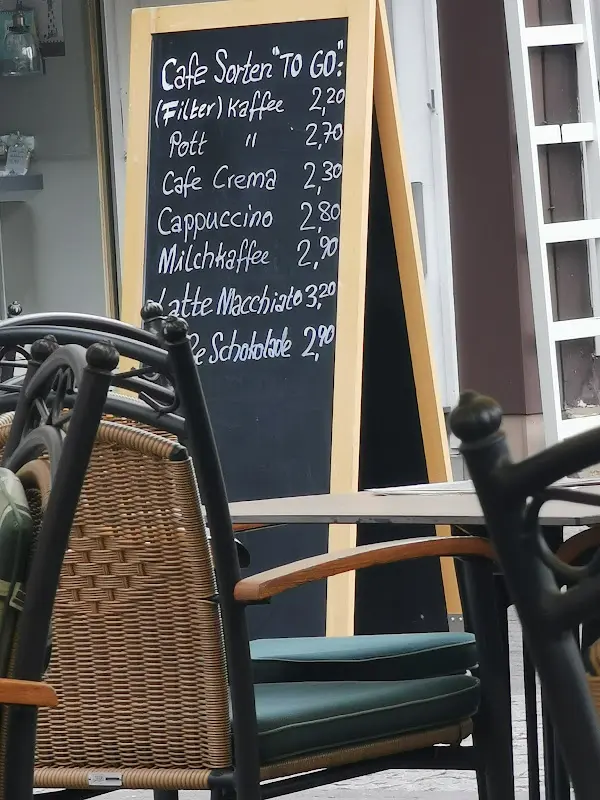 Cafe Sorten "TO GO":
(Filter) Kaffee 2,20
Pott " 2,70
Cafe Crema 2,30
Cappuccino 2,80
Milchkaffee 2,90
Latte Macchiato 3,20
Schokolade 2,90